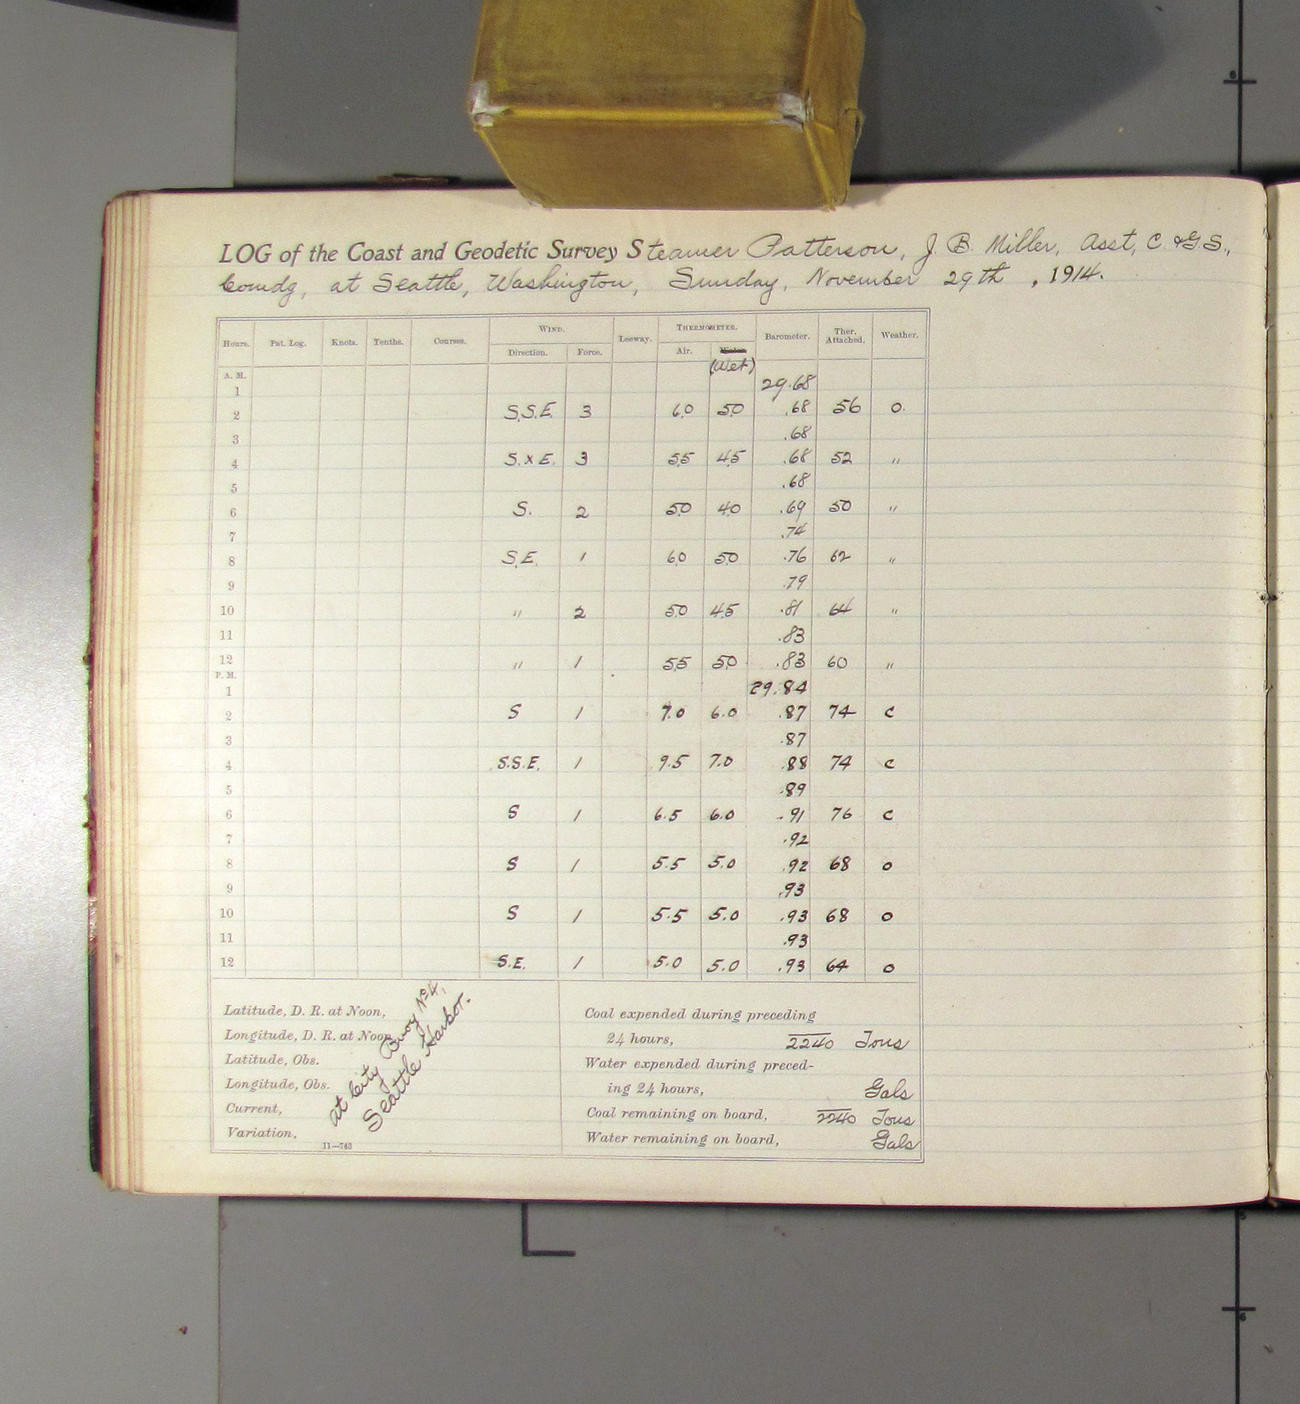 LOG of the Coast and Geodetic Survey Steamer Patterson, J. B. Miller, Asst, C. & G S.,
Comdg, at Seattle, Washington, Sunday, November 29th, 1914.
Hours. Pat. Log. Knots. Tenths. Courses. WIND. Leeway. THERMOMETER. Barometer. Ther. Attached. Weather.
Direction. Force. Air. (Wet)
A. M.
1 29.68
2 S.S.E. 3 6.0 5.0 .68 56 o.
3 .68
4 S. x E. 3 5.5 4.5 .68 52 "
5 .68
6 S. 2 5.0 4.0 .69 50 "
7 .74
8 S.E. 1 6.0 5.0 .76 62 "
9 .79
10 " 2 5.0 4.5 .81 64 "
11 .83
12 " 1 5.5 5.0 .83 60 "
P. M.
1 29.84
2 S 1 7.0 6.0 .87 74 c
3 .87
4 S.S.E. 1 9.5 7.0 .88 74 c
5 .89
6 S 1 6.5 6.0 .91 76 c
7 .92
8 S 1 5.5 5.0 .92 68 o
9 .93
10 S 1 5.5 5.0 .93 68 o
11 .93
12 S.E. 1 5.0 5.0 .93 64 o
Latitude, D. R. at Noon,
Longitude, D. R. at Noon,
Latitude, Obs.
Longitude, Obs.
Current,
Variation,
11—743
at City Buoy No 4,
Seattle Harbor.
Coal expended during preceding
24 hours, 2240 Tons
Water expended during preced-
ing 24 hours, Gals
Coal remaining on board, 2240 Tons
Water remaining on board, Gals